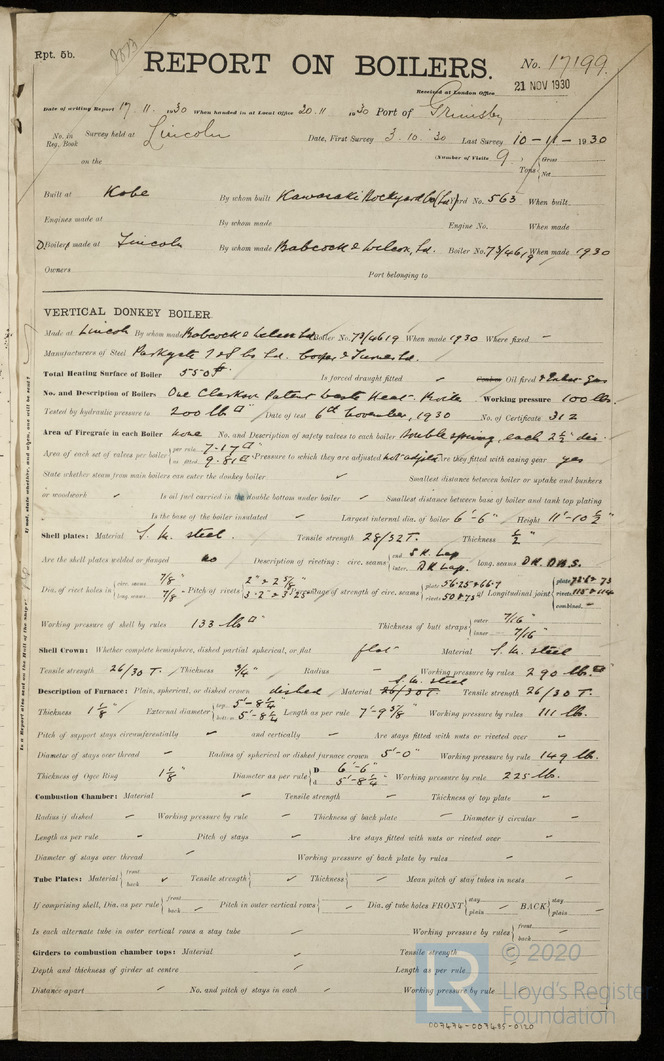 Rpt. 5b.
REPORT ON BOILERS.
No. 17199
Received at London Office 21 NOV 1930
Date of writing Report 17. 11. 1930 When handed in at Local Office 20. 11 1930 Port of Grimsby
No. in Reg. Book Survey held at Lincoln Date, First Survey 3. 10. 30 Last Survey 10-11-1930
on the (Number of Visits 9) Tons Gross Net
Built at Kobe By whom built Kawasaki Dockyard Co Ld Yard No. 563 When built
Engines made at By whom made Engine No. When made
Boilers made at Lincoln By whom made Babcock & Wilcox, Ld. Boiler No. 73/4619 When made 1930
Owners Port belonging to
VERTICAL DONKEY BOILER.
Made at Lincoln By whom made Babcock & Wilcox Ld Boiler No. 73/4619 When made 1930 Where fixed –
Manufacturers of Steel Parkgate I & S Co Ld.
Total Heating Surface of Boiler 550 ft Is forced draught fitted – Oil fired
No. and Description of Boilers One Clarkson Patent Waste Heat Boiler Working pressure 100 lbs.
Tested by hydraulic pressure to 200 lb Date of test 6th November, 1930 No. of Certificate 312
Area of Firegrate in each Boiler none No. and Description of safety valves to each boiler Double spring, each 2½" dia.
Area of each set of valves per boiler per rule 7.17 as fitted 9.81 Pressure to which they are adjusted not adjusted Are they fitted with easing gear yes
State whether steam from main boilers can enter the donkey boiler – Smallest distance between boiler or uptake and bunkers
or woodwork – Is oil fuel carried in the double bottom under boiler – Smallest distance between base of boiler and tank top plating
Is the base of the boiler insulated – Largest internal dia. of boiler 6'-6" Height 11'-10½"
Shell plates: Material S. M. steel. Tensile strength 28/32 T. Thickness ½"
Are the shell plates welded or flanged no Description of riveting: circ. seams end S.R. Lap inter. D.R. Lap. long. seams D.R. D.B.S.
Dia. of rivet holes in circ. seams 7/8" long. seams 7/8" Pitch of rivets 2" & 2 5/8" Percentage of strength of circ. seams plate 56.25 & 66.7 rivets of Longitudinal joint plate rivets 115 & 114 combined –
Working pressure of shell by rules 133 lb Thickness of butt straps outer 7/16" inner 7/16"
Shell Crown: Whether complete hemisphere, dished partial spherical, or flat flat Material S. M. steel
Tensile strength 26/30 T. Thickness ¾" Radius – Working pressure by rules 290 lb.
Description of Furnace: Plain, spherical, or dished crown dished Material S. M. steel Tensile strength 26/30 T.
Thickness 1 1/8" External diameter top 5'-8¼" bottom 5'-8¼" Length as per rule 7'-9 5/8" Working pressure by rules 111 lb.
Pitch of support stays circumferentially – and vertically – Are stays fitted with nuts or riveted over –
Diameter of stays over thread – Radius of spherical or dished furnace crown 5'-0" Working pressure by rule 149 lb.
Thickness of Ogee Ring 1 1/8" Diameter as per rule D 6'-6" d 5'-8¼" Working pressure by rule 225 lb.
Combustion Chamber: Material – Tensile strength – Thickness of top plate –
Radius if dished – Working pressure by rule – Thickness of back plate – Diameter if circular –
Length as per rule – Pitch of stays – Are stays fitted with nuts or riveted over –
Diameter of stays over thread – Working pressure of back plate by rules –
Tube Plates: Material front back – Tensile strength – Thickness – Mean pitch of stay tubes in nests –
If comprising shell, Dia. as per rule front back – Pitch in outer vertical rows – Dia. of tube holes FRONT stay plain – BACK stay plain –
Is each alternate tube in outer vertical rows a stay tube – Working pressure by rules front back –
Girders to combustion chamber tops: Material – Tensile strength –
Depth and thickness of girder at centre – Length as per rule –
Distance apart – No. and pitch of stays in each – Working pressure by rule –
LR © 2020
Lloyd's Register
Foundation
007474-007485-0120